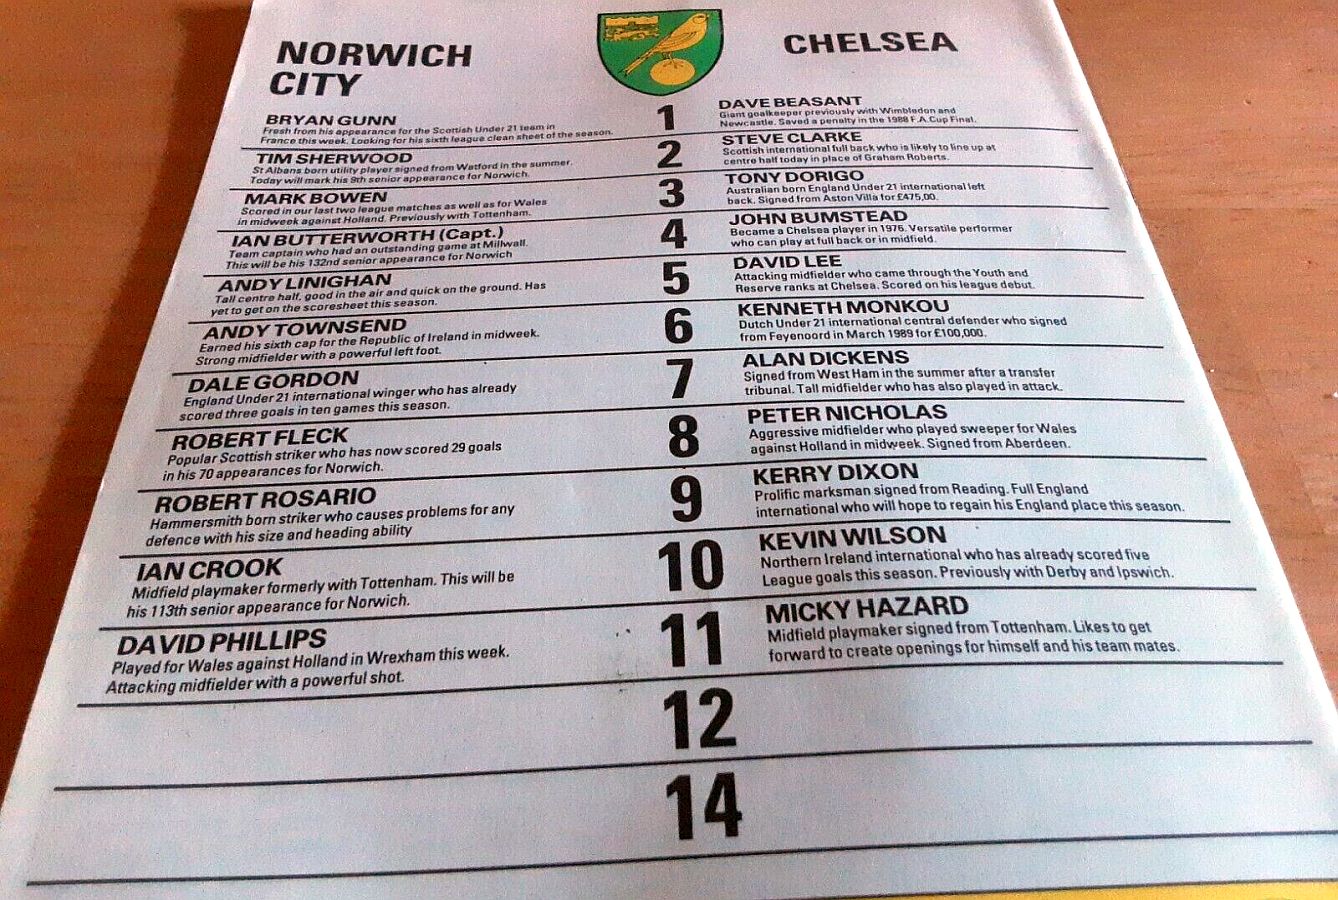 NORWICH
CITY
CHELSEA
BRYAN GUNN
Fresh from his appearance for the Scottish Under 21 team in
France this week. Looking for his sixth league clean sheet of the season.
1
DAVE BEASANT
Giant goalkeeper previously with Wimbledon and
Newcastle. Saved a penalty in the 1988 F.A. Cup Final.
TIM SHERWOOD
St Albans born utility player signed from Watford in the summer.
Today will mark his 9th senior appearance for Norwich.
2
STEVE CLARKE
Scottish international full back who is likely to line up at
centre half today in place of Graham Roberts.
MARK BOWEN
Scored in our last two league matches as well as for Wales
in midweek against Holland. Previously with Tottenham.
3
TONY DORIGO
Australian born England Under 21 international left
back. Signed from Aston Villa for £475,00.
IAN BUTTERWORTH (Capt.)
Team captain who had an outstanding game at Millwall.
This will be his 132nd senior appearance for Norwich
4
JOHN BUMSTEAD
Became a Chelsea player in 1976. Versatile performer
who can play at full back or in midfield.
ANDY LINIGHAN
Tall centre half, good in the air and quick on the ground. Has
yet to get on the scoresheet this season.
5
DAVID LEE
Attacking midfielder who came through the Youth and
Reserve ranks at Chelsea. Scored on his league debut.
ANDY TOWNSEND
Earned his sixth cap for the Republic of Ireland in midweek.
Strong midfielder with a powerful left foot.
6
KENNETH MONKOU
Dutch Under 21 international central defender who signed
from Feyenoord in March 1989 for £100,000.
DALE GORDON
England Under 21 international winger who has already
scored three goals in ten games this season.
7
ALAN DICKENS
Signed from West Ham in the summer after a transfer
tribunal. Tall midfielder who has also played in attack.
ROBERT FLECK
Popular Scottish striker who has now scored 29 goals
in his 70 appearances for Norwich.
8
PETER NICHOLAS
Aggressive midfielder who played sweeper for Wales
against Holland in midweek. Signed from Aberdeen.
ROBERT ROSARIO
Hammersmith born striker who causes problems for any
defence with his size and heading ability
9
KERRY DIXON
Prolific marksman signed from Reading. Full England
international who will hope to regain his England place this season.
IAN CROOK
Midfield playmaker formerly with Tottenham. This will be
his 113th senior appearance for Norwich.
10
KEVIN WILSON
Northern Ireland international who has already scored five
League goals this season. Previously with Derby and Ipswich.
DAVID PHILLIPS
Played for Wales against Holland in Wrexham this week.
Attacking midfielder with a powerful shot.
11
MICKY HAZARD
Midfield playmaker signed from Tottenham. Likes to get
forward to create openings for himself and his team mates.
12
14